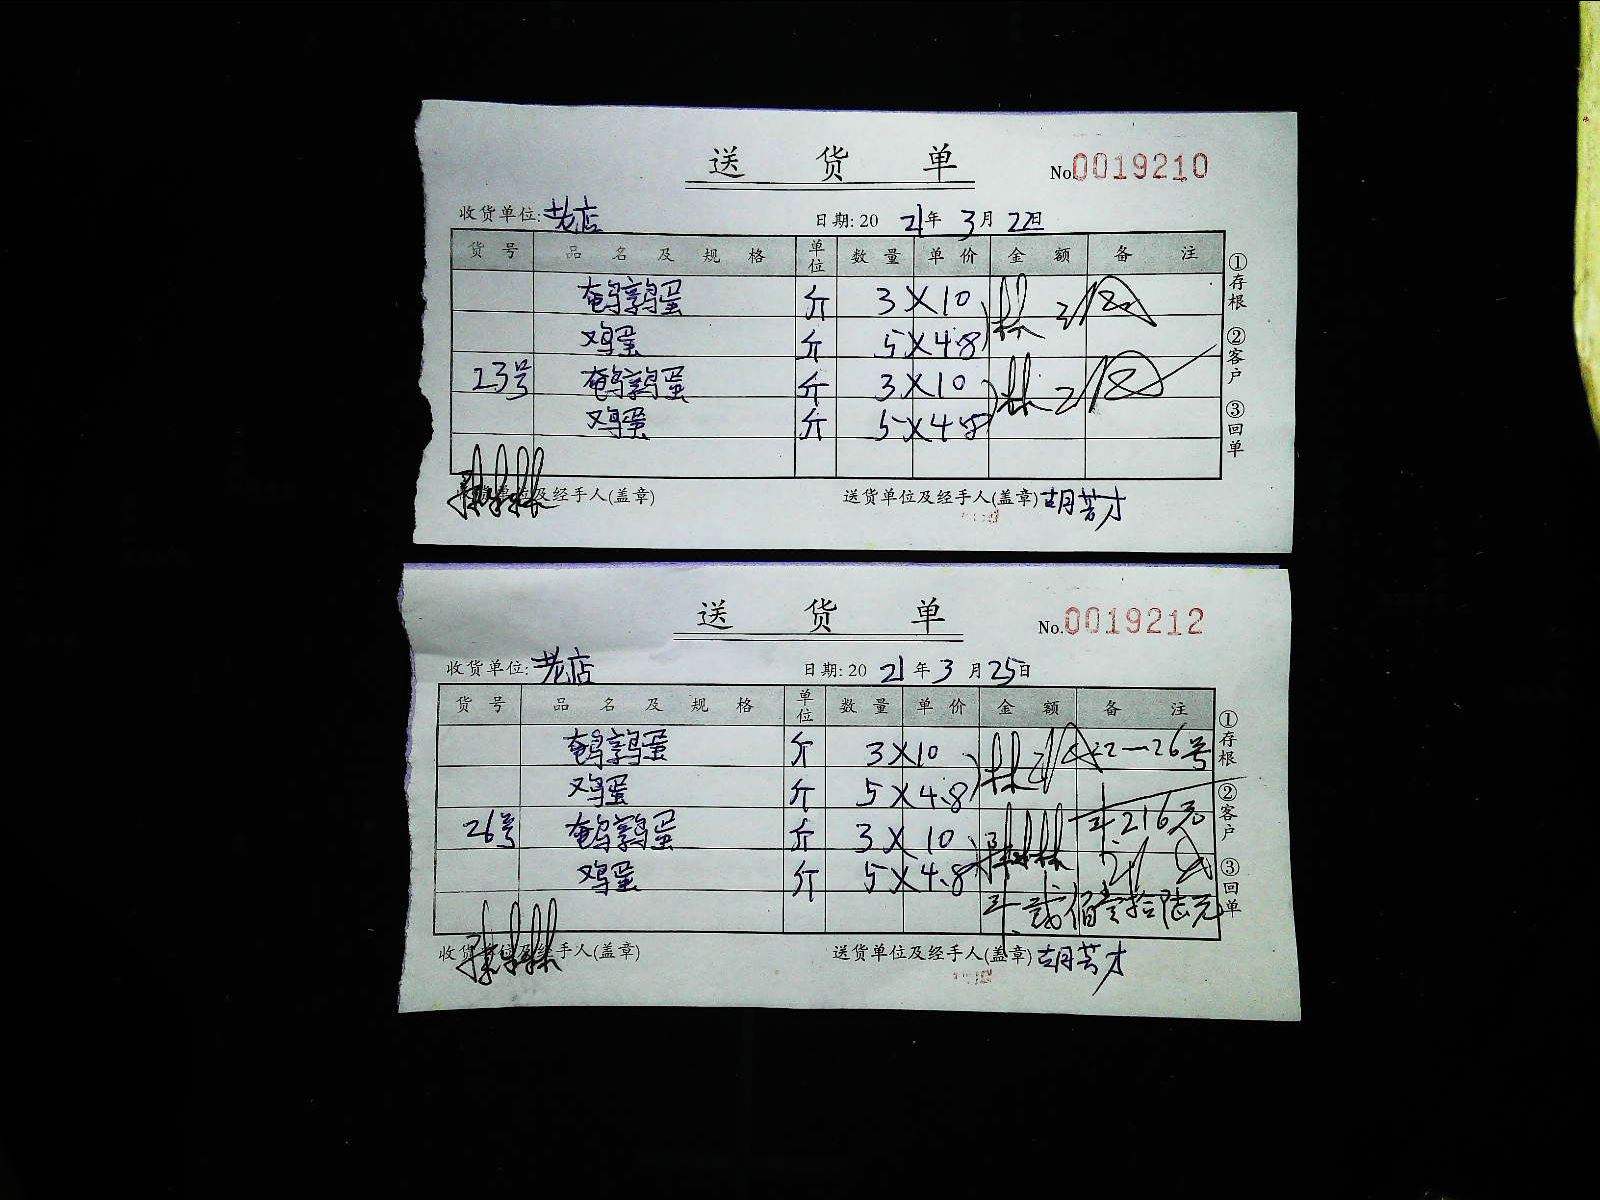 送 货 单 No.0019210
收货单位: 老店 日期: 20 21 年 3 月 22日
货 号 品 名 及 规 格 单位 数 量 单 价 金 额 备 注
鹌鹑蛋 斤 3 X 10
鸡蛋 斤 5 X 4.8
23号 鹌鹑蛋 斤 3 X 10
鸡蛋 斤 5 X 4.8
①存根 ②客户 ③回单
单位及经手人(盖章) 送货单位及经手人(盖章) 胡芳才
送 货 单 No.0019212
收货单位: 老店 日期: 20 21 年 3 月 25日
货 号 品 名 及 规 格 单位 数 量 单 价 金 额 备 注
鹌鹑蛋 斤 3 X 10 22—26号
鸡蛋 斤 5 X 4.8
26号 鹌鹑蛋 斤 3 X 10 216元
鸡蛋 斤 5 X 4.8
贰佰壹拾陆元
①存根 ②客户 ③回单
收货单位及经手人(盖章) 送货单位及经手人(盖章) 胡芳才